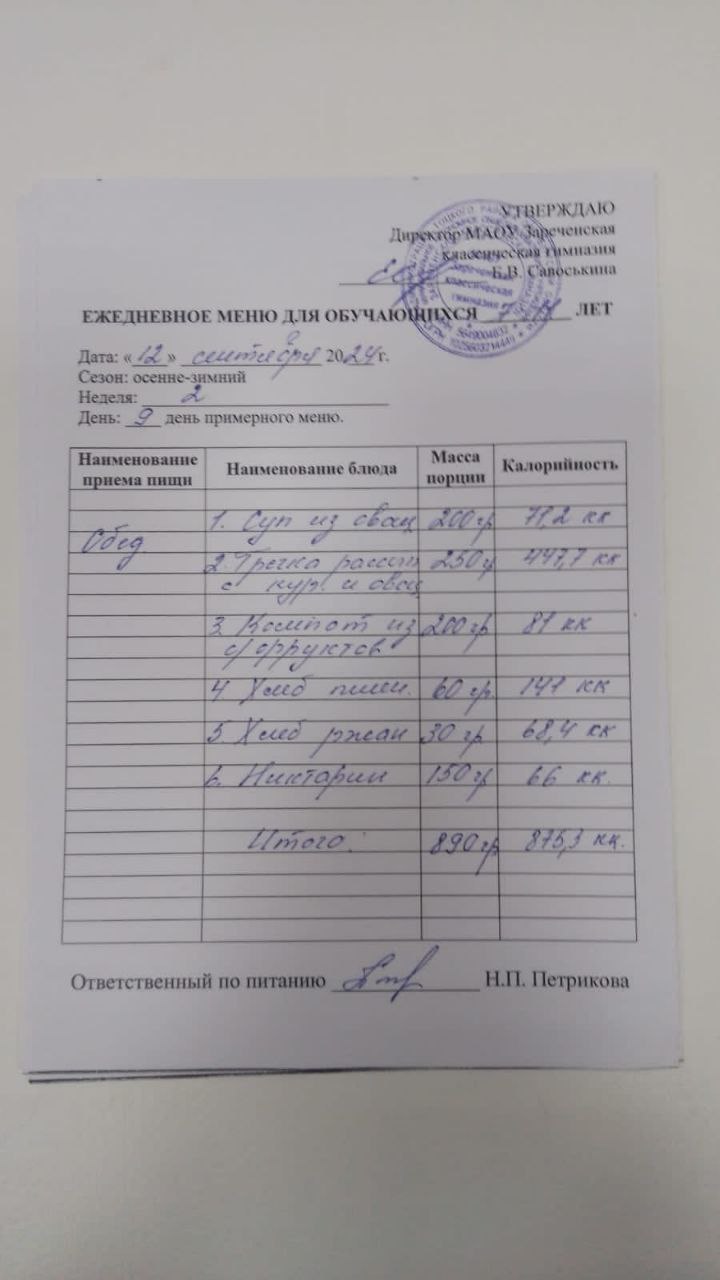 УТВЕРЖДАЮ
Директор МАОУ Зареченская
классическая гимназия
Е.В. Савоськина
ЕЖЕДНЕВНОЕ МЕНЮ ДЛЯ ОБУЧАЮЩИХСЯ 7-11 ЛЕТ
Дата: «12» сентября 2024 г.
Сезон: осенне-зимний
Неделя: 2
День: 9 день примерного меню.
Наименование приема пищи Наименование блюда Масса порции Калорийность
Обед 1. Суп из овощ 200 гр 71,2 кк
2. Гречка рассып 250 г 447,7 кк
с кур. и овощ
3. Компот из 200 гр 81 кк
с/фруктов
4 Хлеб пшен. 60 гр. 141 кк
5. Хлеб ржан 30 гр 68,4 кк
6. Никтарин 150 гр 66 кк.
Итого: 890 гр 875,3 кк.
Ответственный по питанию Н.П. Петрикова